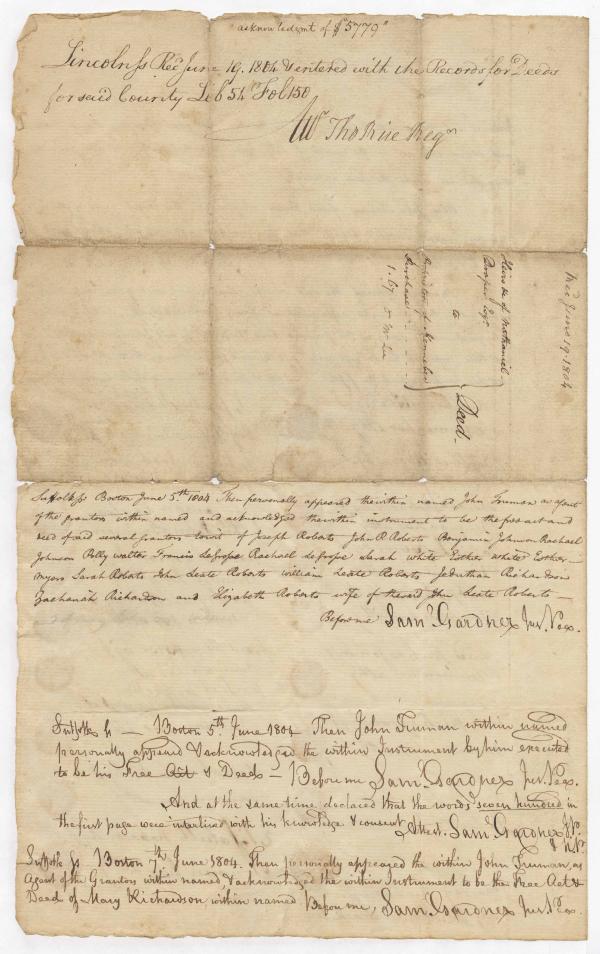 acknowledgmt of $5779
Lincoln ss Recd June 19. 1804 & entered with the Records for Deeds
for said County Lib 54 Fol 150.
Attr Tho Rice Regr
Recd June 19. 1804
Heirs &c of Nathaniel
Draper Esqr
to
Proprietors of Kennebec
Purchase
Deed.
Suffolk ss Boston June 5th 1804 Then personally appeared the within named John Truman as agent
of the grantors within named and acknowledged the within instrument to be the free act and
deed of said several grantors to wit of Joseph Roberts John R Roberts Benjamin Johnson Rachael
Johnson Polly Walter Francis Rachael Sarah White Esther White Esther
Myers Sarah Roberts John Leate Roberts William Leate Roberts Jeduthan Richardson
Zachariah Richardson and Elizabeth Roberts wife of the sd John Leate Roberts —
Before me Saml Gardner Jus. Peax.
Suffolk ss — Boston 5th June 1804 Then John Truman within named
personally appeared & acknowledged the within Instrument by him executed
to be his Free Act & Deed — Before me Saml. Gardner Jus. Peax.
And at the same time declared that the words seven hundred in
the first page were interlined with his knowledge & consent Attest. Saml Gardner J. P.
Suffolk ss Boston 7th June 1804. Then personally appeared the within John Truman, as
Agent of the Grantors within named & acknowledged the within Instrument to be the Free Act &
Deed of Mary Richardson within named Before me, Saml. Gardner Jus. Peax.